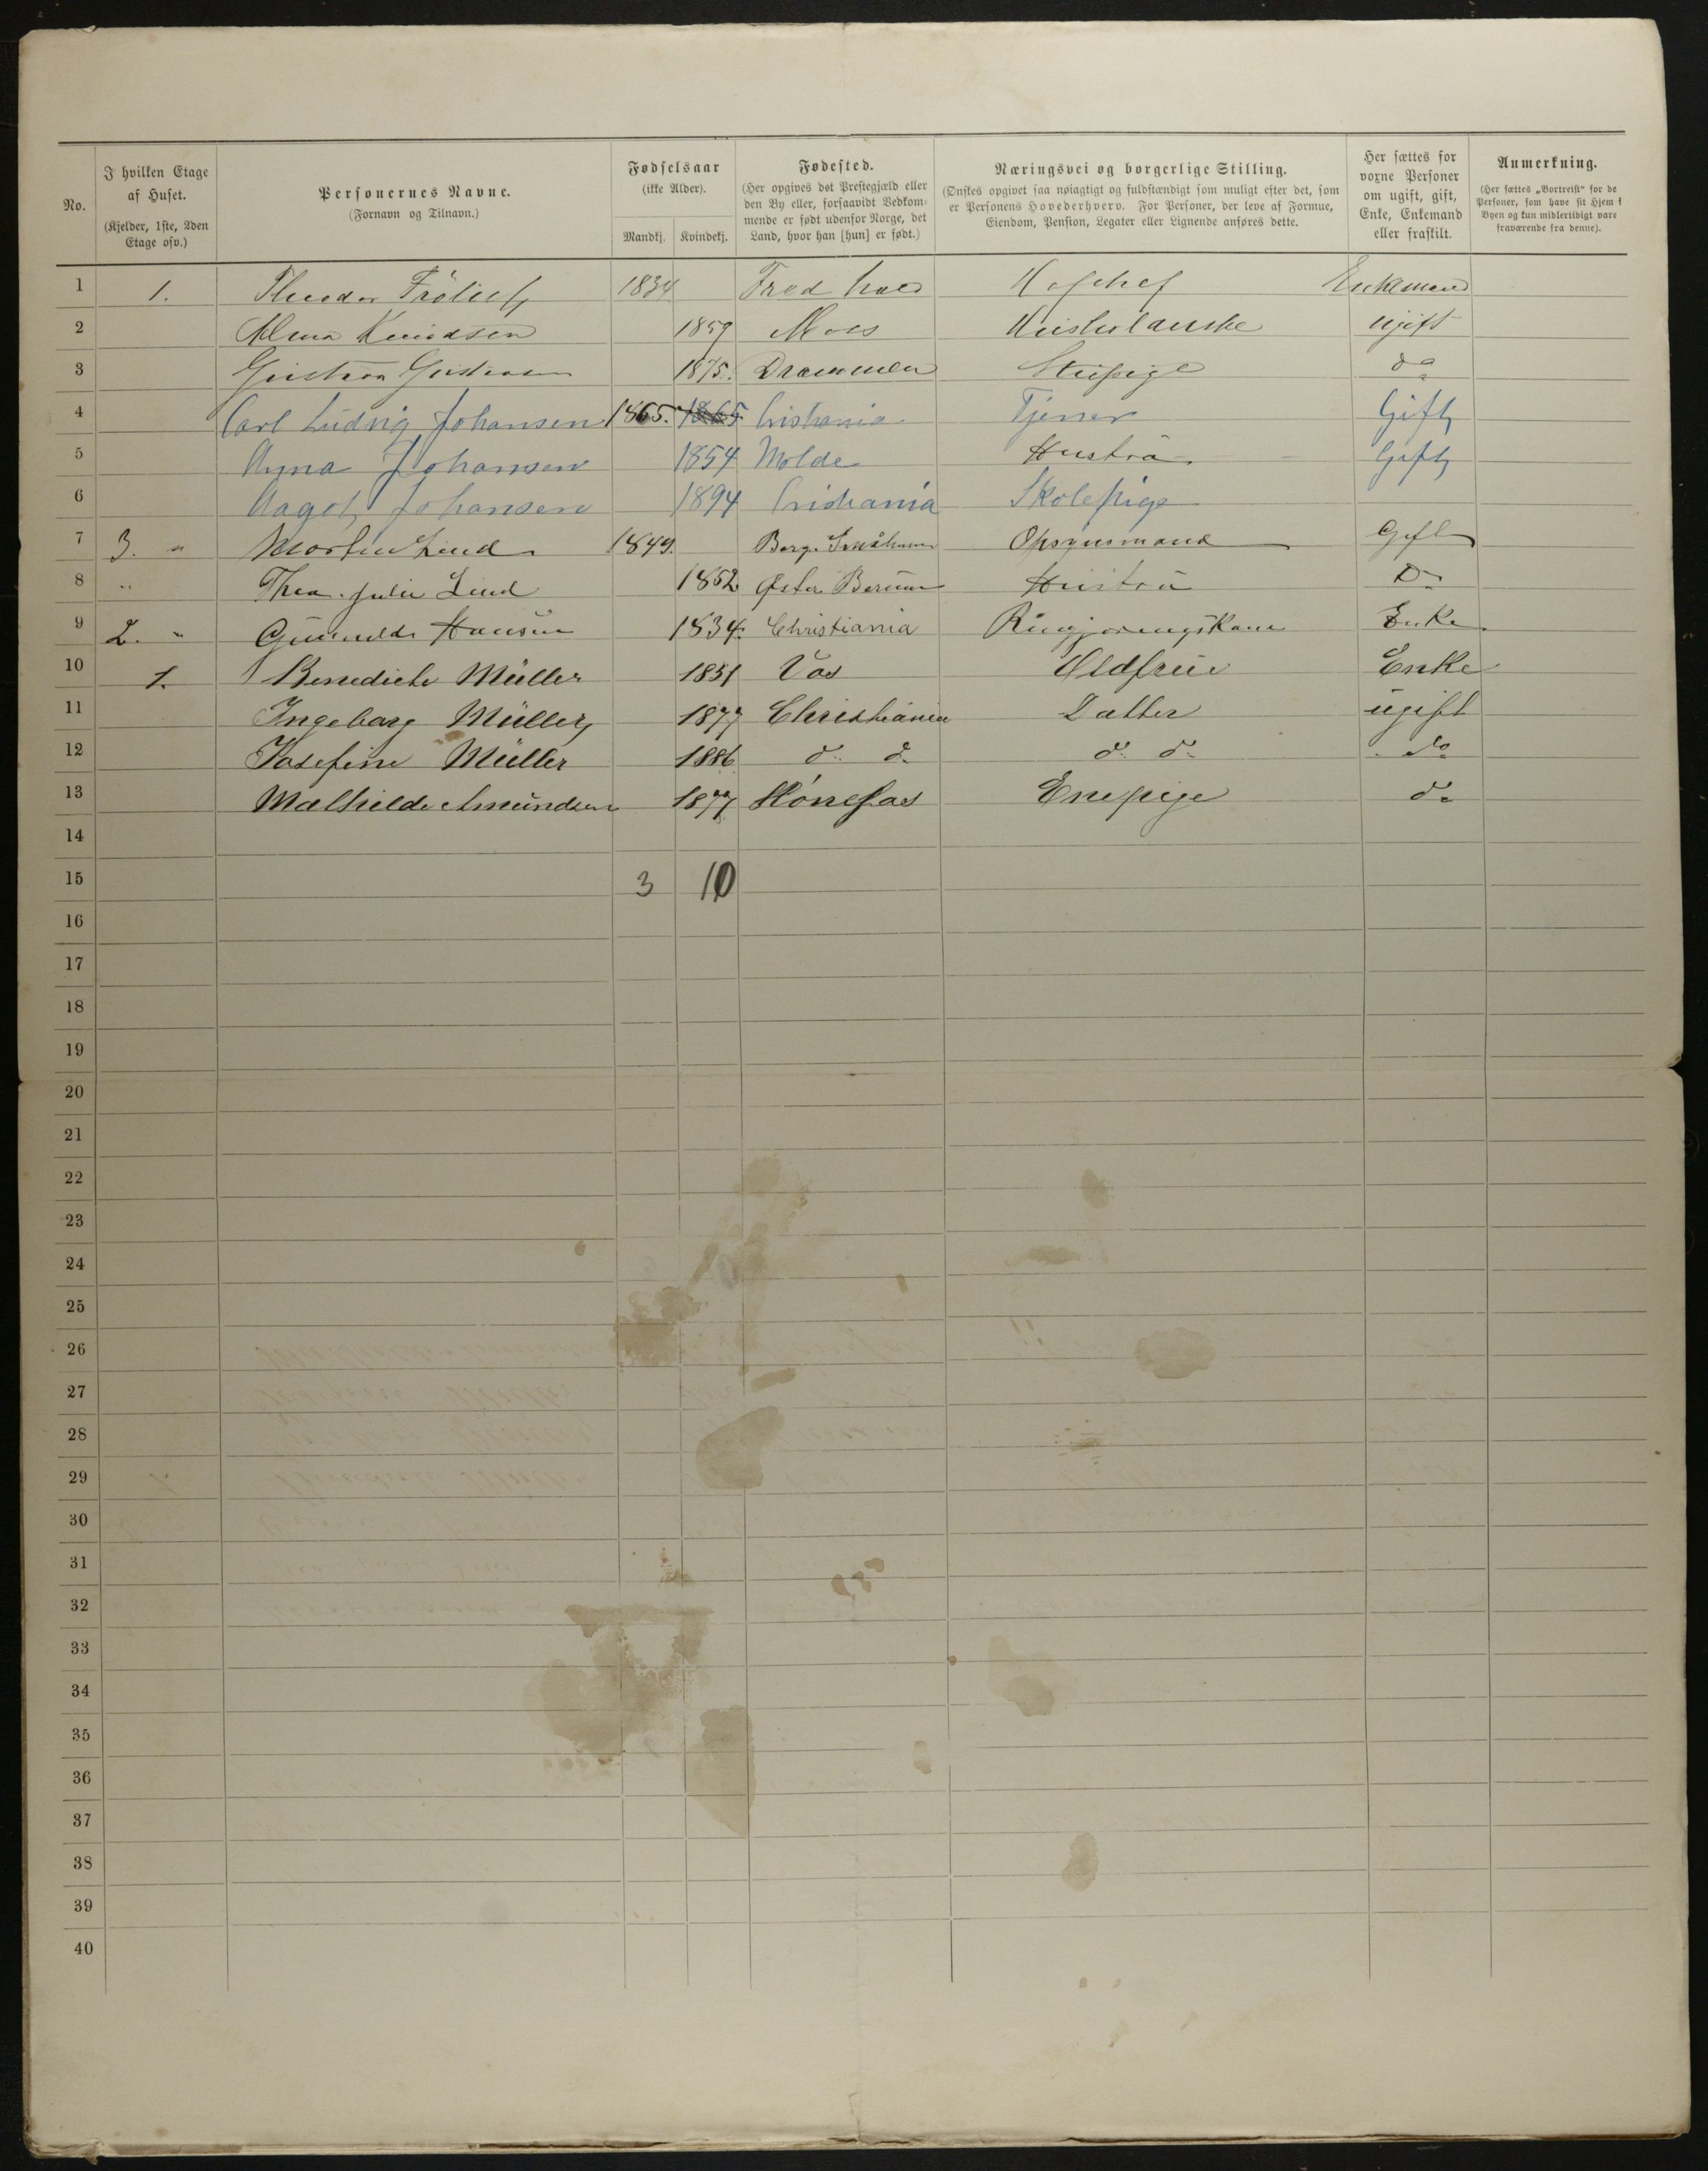 No.
I hvilken Etage af Huset.
(Kjelder, 1ste, 2den Etage osv.)
Personernes Navne.
(Fornavn og Tilnavn.)
Fødselsaar
(ikke Alder).
Mandkj. Kvindekj.
Fødested.
(Her opgives det Prestegjæld eller den By eller, forsaavidt Vedkommende er født udenfor Norge, det Land, hvor han [hun] er født.)
Næringsvei og borgerlige Stilling.
(Ønskes opgivet saa nøiagtigt og fuldstændigt som muligt efter det, som er Personens Hovederhverv. For Personer, der leve af Formue, Eiendom, Pension, Legater eller Lignende anføres dette.
Her sættes for voxne Personer om ugift, gift, Enke, Enkemand eller fraskilt.
Anmerkning.
(Her sættes „Bortreist" for de Personer, som have sit Hjem i Byen og kun midlertidigt vare fraværende fra denne).
1 1. Theodor Frölich 1834 Fredhald Hofchef Enkemand
2 Alma Knudsen 1859 Moss ugift
3 1875. Drammen Stuepige do
4 Carl Ludvig Johansen 1865. 1865. Cristiania Tjener Gift
5 Anna Johansen 1854 Molde Hustru Gift
6 Aagot Johansen 1894 Cristiania Skolepige
7 3. " Morten Lind 1849. Opsynsmand Gift
8 " Thea Julie Lind 1852 Øster Berum Hustru Do
9 2. " Gunnilde Hansen 1834. Christiania Rengjøringskone Enke
10 1. Benedicte Müller 1851 Vos Oldfrue Enke
11 Ingeborg Müller 1877 Christiania Datter ugift
12 Josefine Müller 1886 do do do do do
13 Mathilde Amundsen 1877 Hönefos Enepige do
14
15 3 10
16
17
18
19
20
21
22
23
24
25
26
27
28
29
30
31
32
33
34
35
36
37
38
39
40